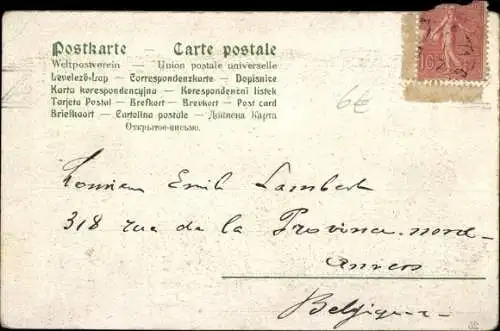 Postkarte — Carte postale
Weltpostverein — Union postale universelle
Levelező-Lap — Correspondenzkarte — Dopisnice
Karta korespondencyjna — Korespondenční lístek
Tarjeta Postal — Brefkort — Brevkort — Post card
Briefkaart — Cartolina postale — Дописна Карта
Открытое письмо.
10
6€
Monsieur Emile Lambert
318 rue de la Province-nord-
Anvers
Belgique